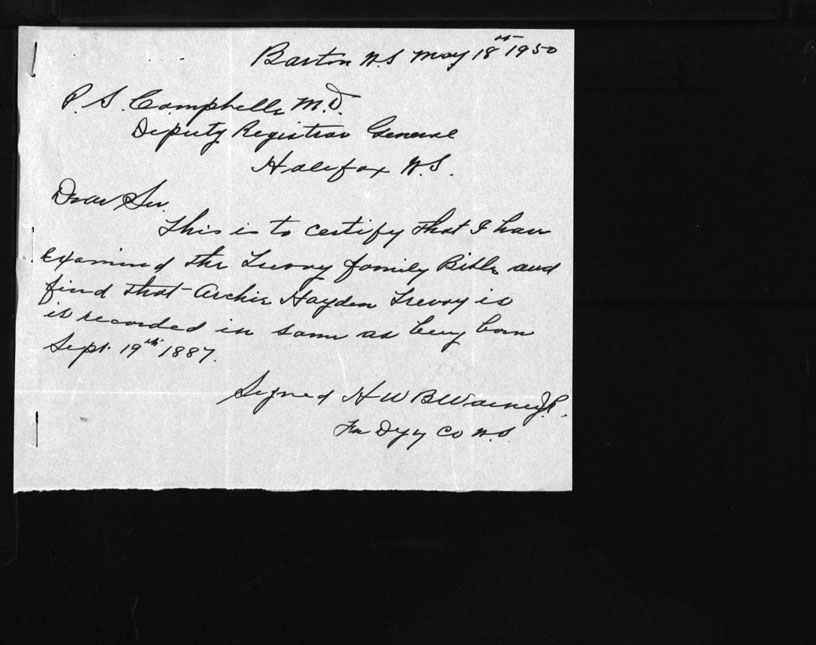 Barton N.S May 18th 1950
P. S. Campbell M.D.
Deputy Registrar General
Halifax N.S.
Dear Sir
This is to certify that I have
examined the family Bible and
find that Archie Hayden is
is recorded in same as being born
Sept. 19th 1887.
Signed H W B Warne J.P.
For Co N.S